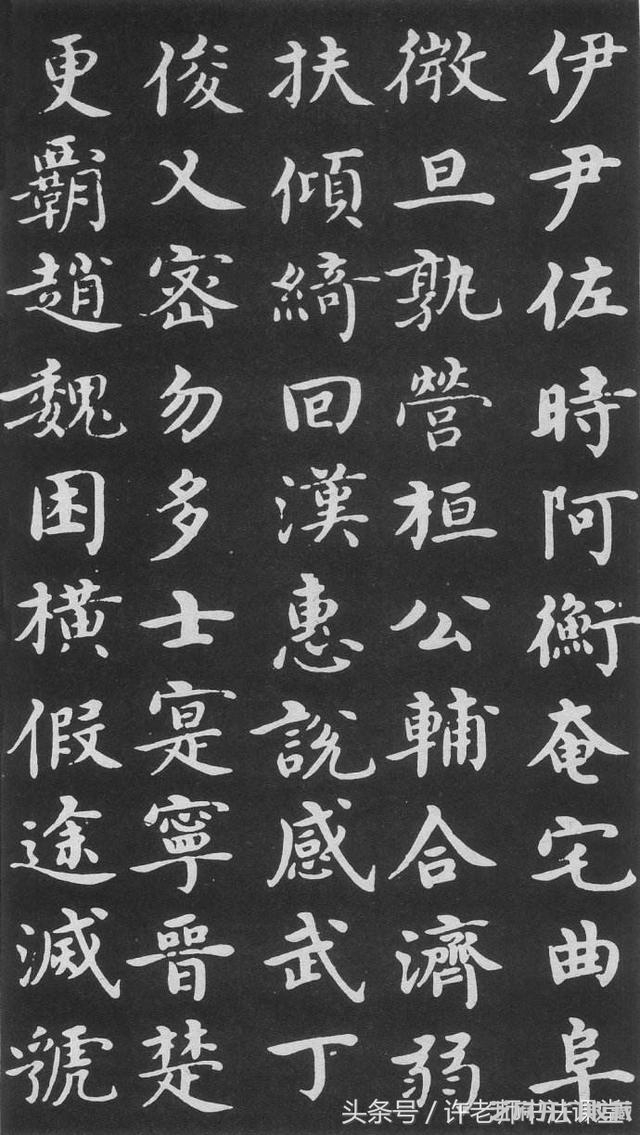 伊尹佐時阿衡奄宅曲阜
微旦孰營桓公輔合濟弱
扶傾綺回漢惠說感武丁
俊乂密勿多士寔寧晉楚
更霸趙魏困橫假途滅虢
头条号/许老师书法课堂